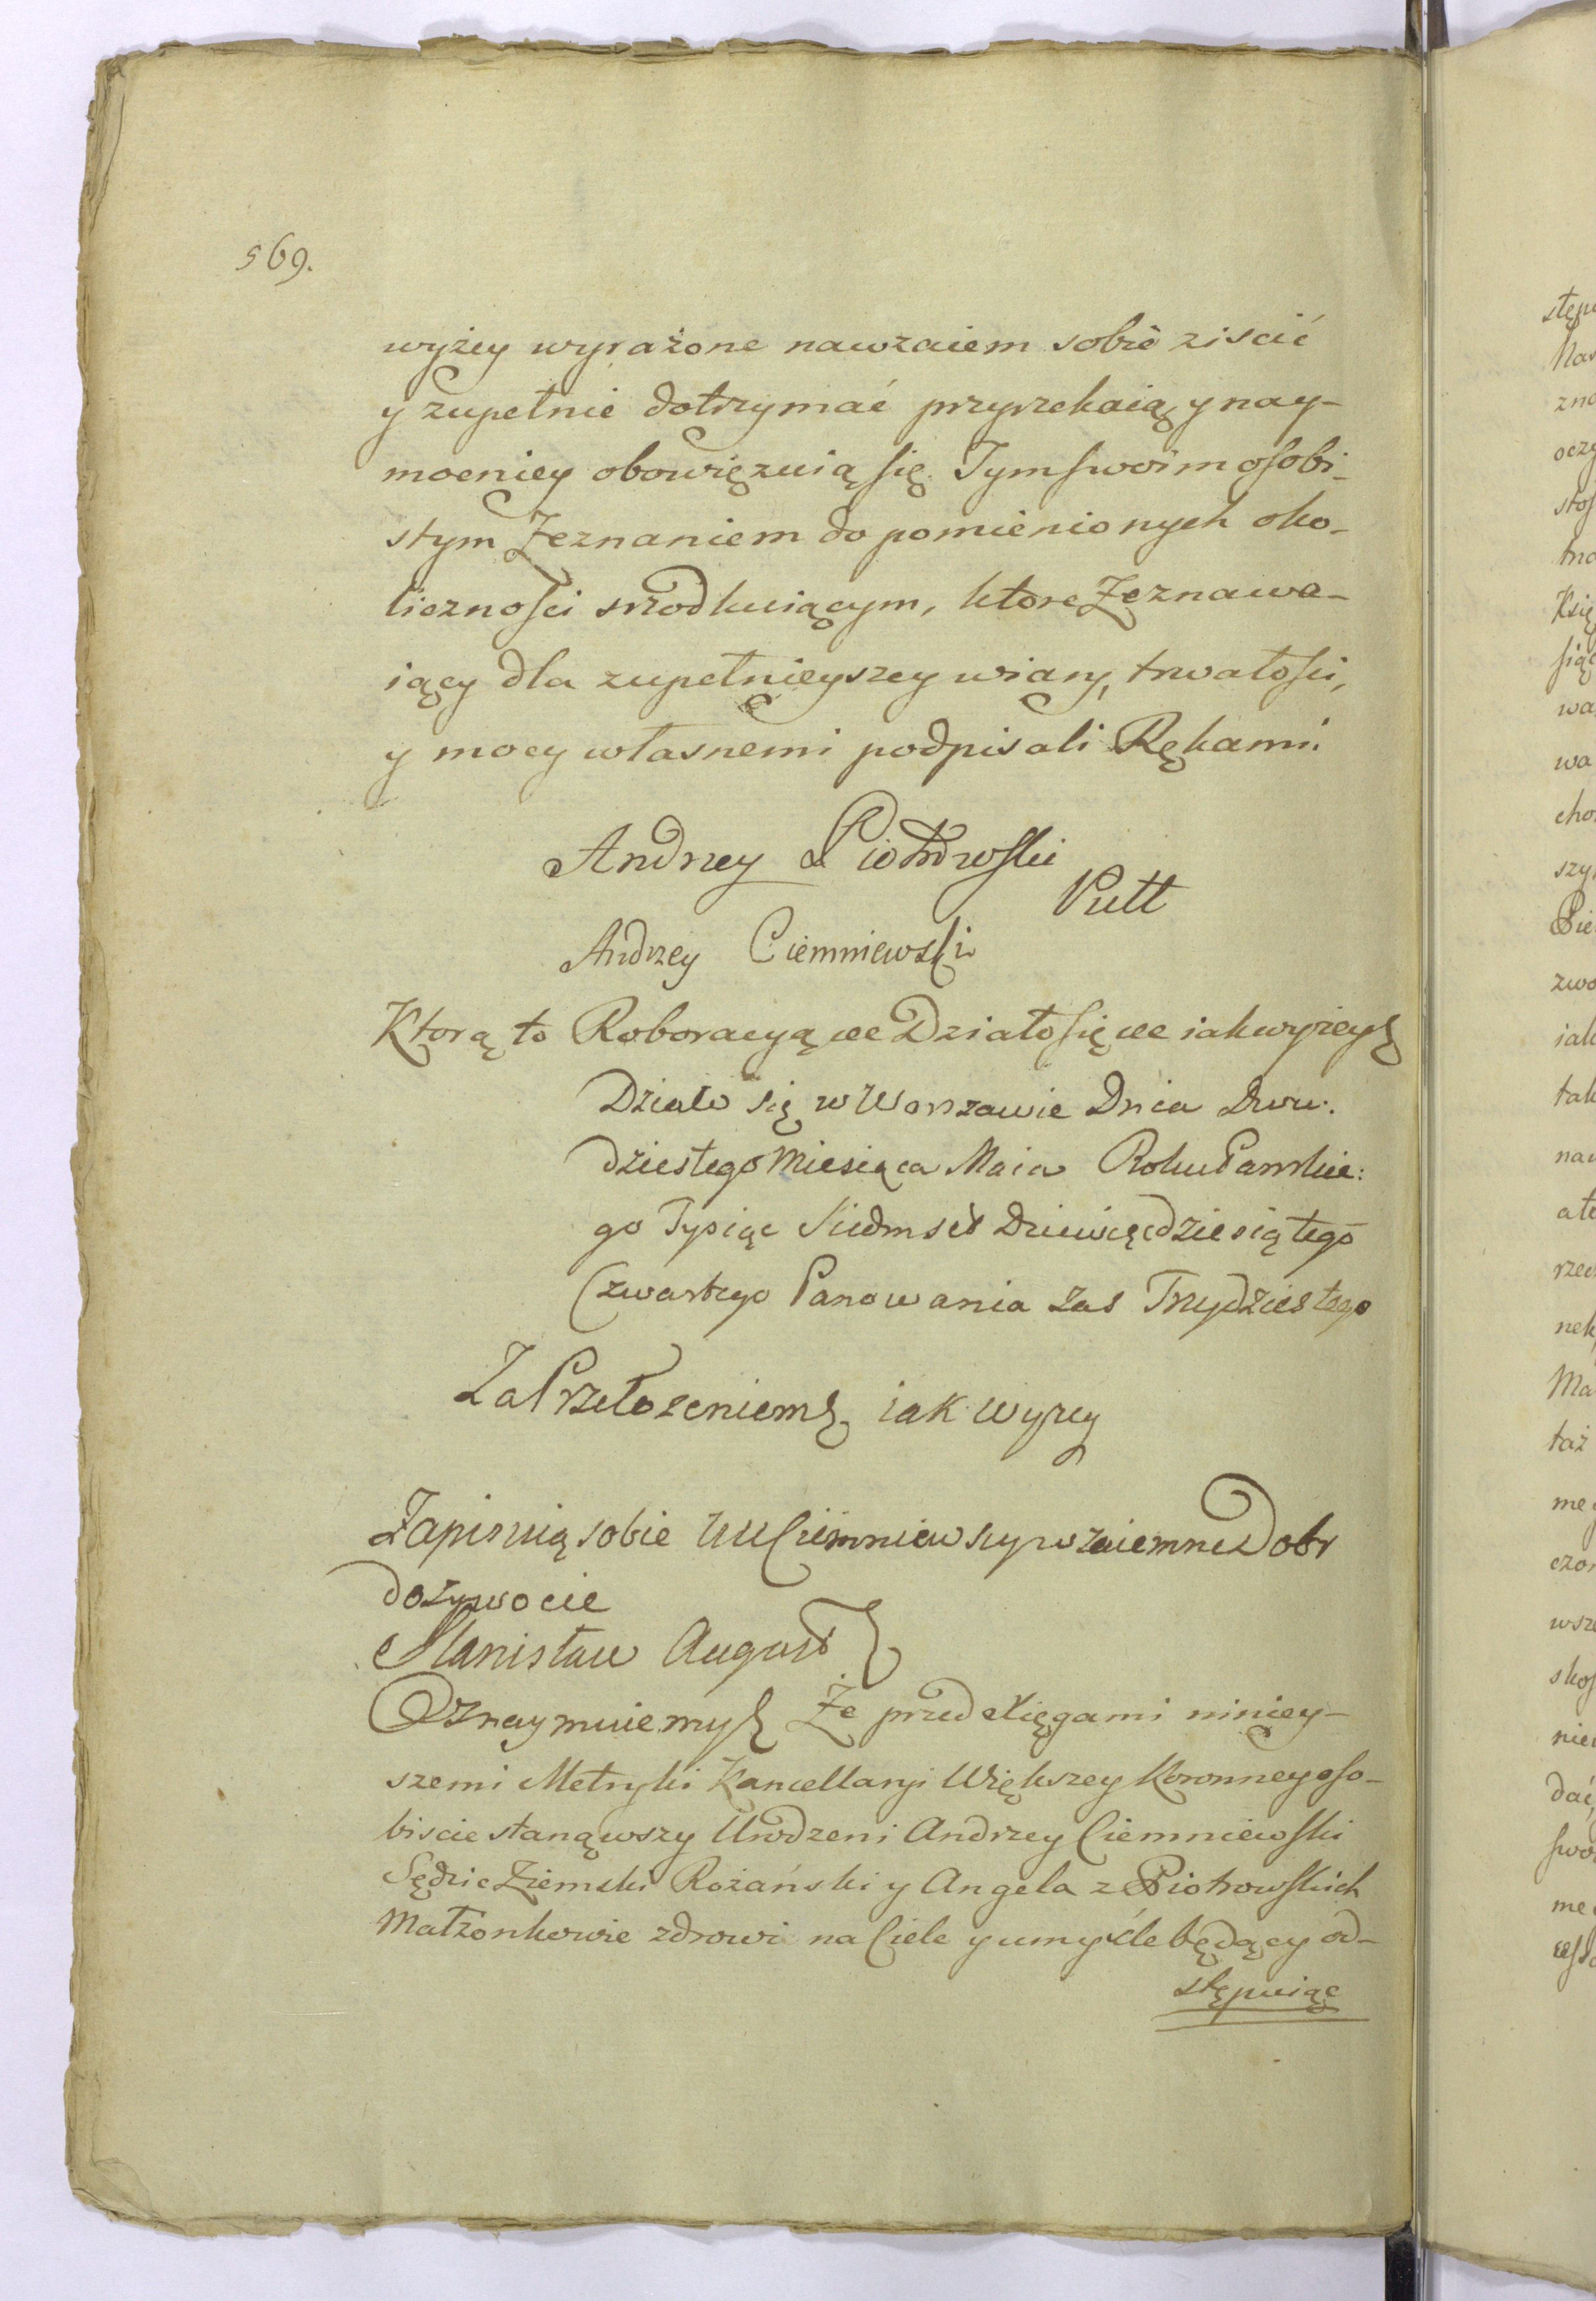 569.
wyżey wyrażone nawzaiem sobie ziscić
y zupełnie dotrzymać przyrzekaią y nay-
mocniey obowięzuią się. Tym swoim osobi-
stym Zeznaniem do pomienionych oko-
liczności srzodkuiącym, które Zeznawa-
iący dla zupełnieyszey wiary, trwałości,
y mocy własnemi podpisali Rękami.
Andrzey Piotrowski
Pułł
Andrzey Ciemniewski
Ktorą to Roboracyą etc Działo się etc iak wyzey
Działo się w Warszawie Dnia Dwu:
dziestego Miesiąca Maia Roku Panskie:
go Tysiąc Siedmset Dziewięćdziesiątego
Czwartego Panowania zas Trzydziestego
Za Przełozeniem iak wyzey
Zapisuią sobie UU Ciemniewscy wzaiemne Dobr
dozywocie
Stanisław August
Oznaymuiemy Że przed Xięgami ninięy-
szemi Metryki Kancellaryi Większey Koronney oso-
biscie stanąwszy Urodzeni Andrzey Ciemniewski
Sędzia Ziemski Rożański y Angela z Piotrowskich
Małżonkowie zdrowi na Ciele y umyśle będący od-
stępuiąc
stęp
zna
oczy
Ksią
wa
wa
cho
szy
Pie
zwo
iak
tak
nay
rzec
nek
Ma
taż
czon
wsze
skoś
nie
dać
swo
me